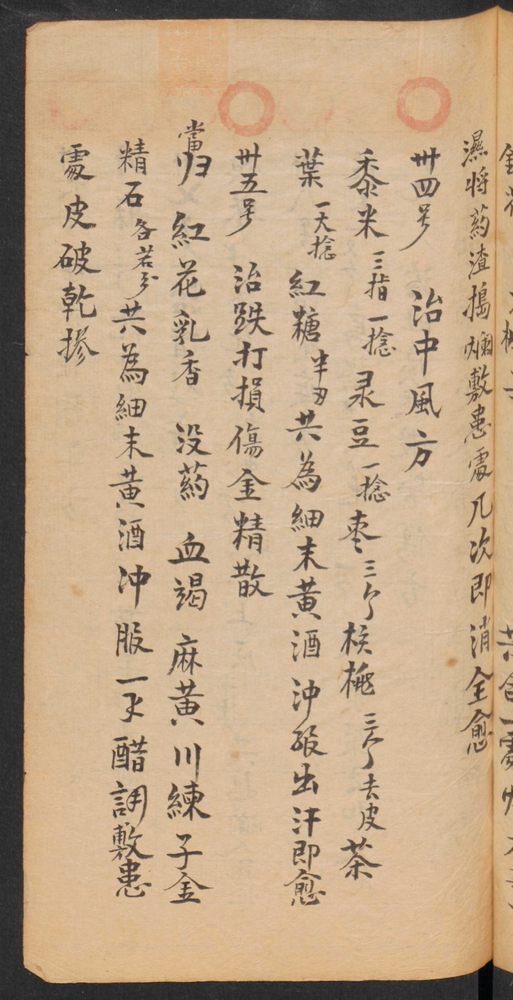 濕将药渣搗爛敷患處几次即消全愈
卅四号 治中風方
黍米三指一捻 录豆一捻 枣三个 核桃三个去皮 茶
葉一大捻 紅糖半刃 共為細末黄酒冲服出汗即愈
卅五号 治跌打損傷金精散
當归 紅花 乳香 没药 血竭 麻黄 川練子 金
精石各若分 共為細末黄酒冲服一才醋調敷患
處皮破乾掺